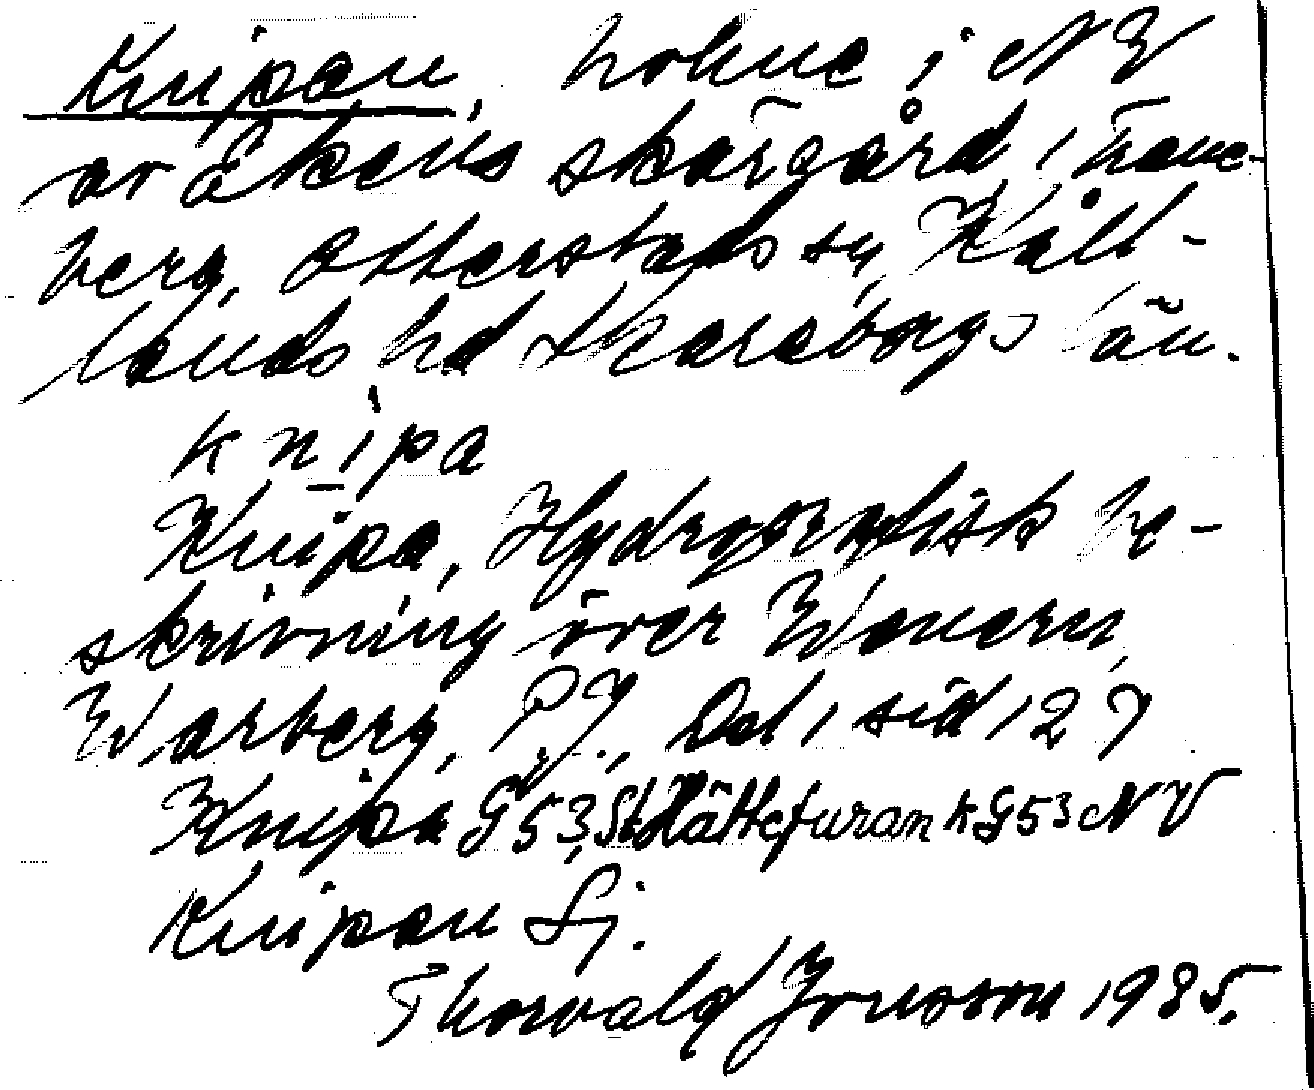 Knipan, holme i NV
av Ekens skärgård, i
berg, Otterstads sn, Kål-
lands hd Skaraborgs län.
knipa
Knipa, Hydrografisk be-
skrivning över Wenern,
Warberg, P.J., Del 1 sid 127
Knipa G 53, St Hättefuran k G53 NV
Knipan Sj.
Thorvald Jonsson 1985.